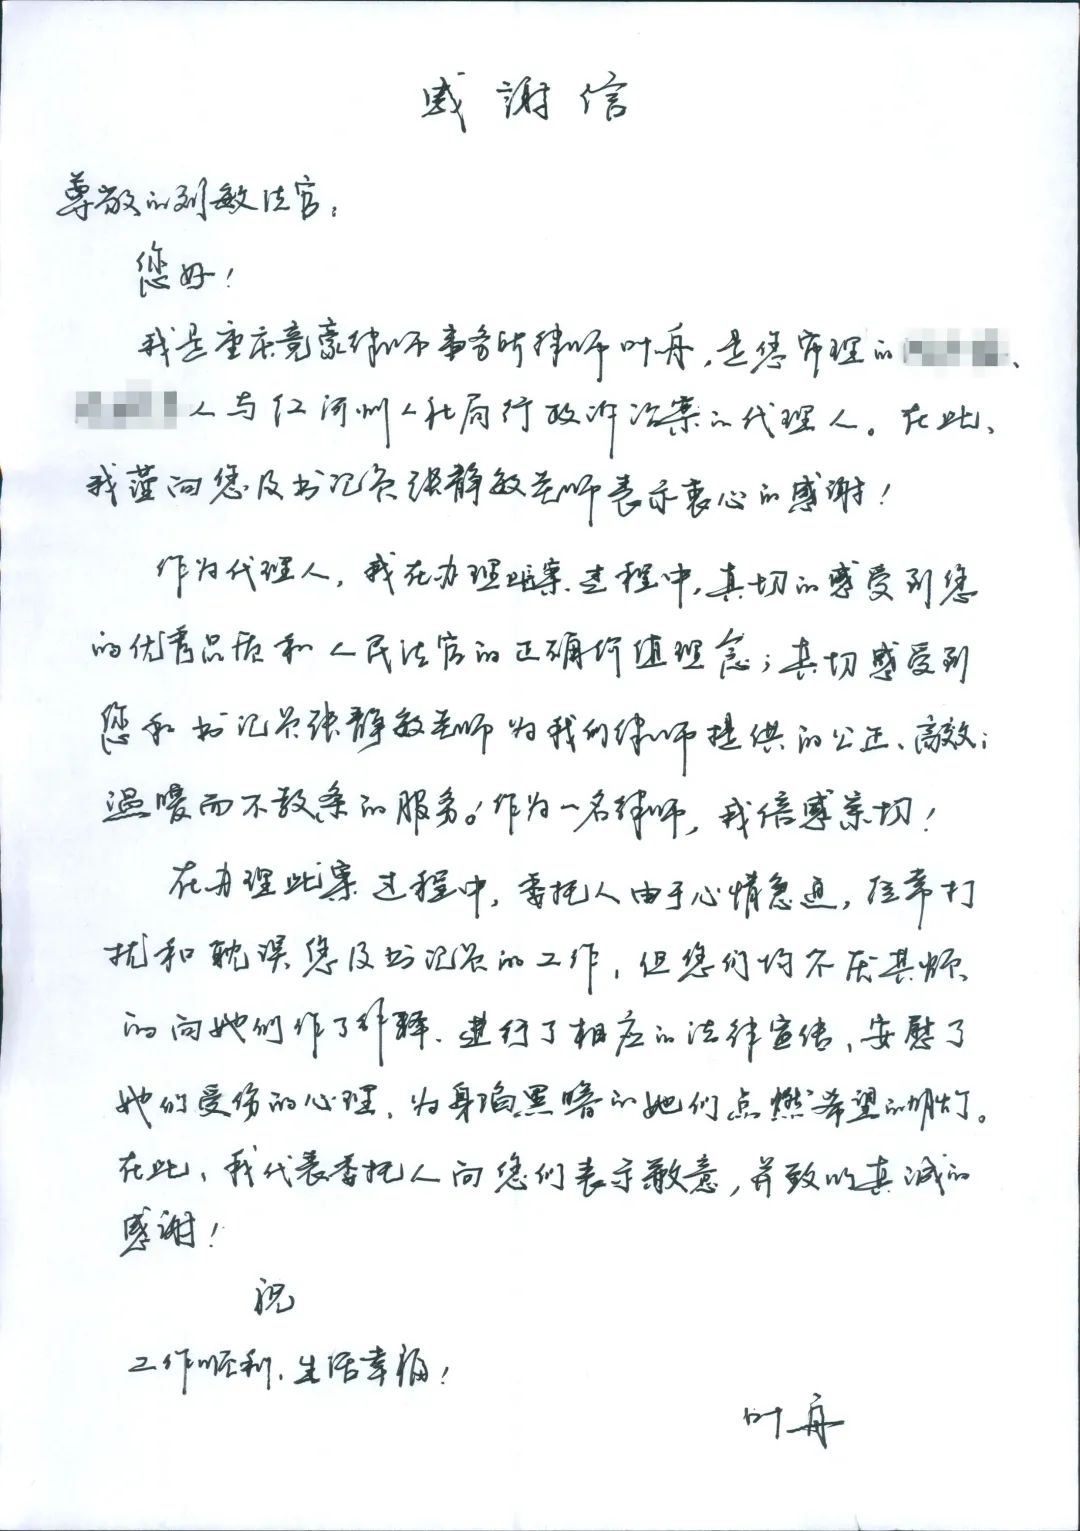 感謝信
尊敬的刘敏法官：
您好！
我是重庆竞豪律师事务所律师叶舟，是您审理的、
人与红河州人社局行政诉讼案的代理人。在此、
我谨向您及书记员张静敏老师表示衷心的感谢！
作为代理人，我在办理此案过程中，真切的感受到您
的优秀品质和人民法官的正确价值理念；真切感受到
您和书记员张静敏老师为我们律师提供的公正、高效；
温暖而不教条的服务。作为一名律师，我倍感亲切！
在办理此案过程中，委托人由于心情急迫，经常打
扰和耽误您及书记员的工作，但您们均不厌其烦
的向她们作了解释、进行了相应的法律宣传、安慰了
她们受伤的心理、为身陷黑暗的她们点燃希望的明灯。
在此、我代表委托人向您们表示敬意，并致以真诚的
感谢！
祝
工作顺利、生活幸福！
叶舟